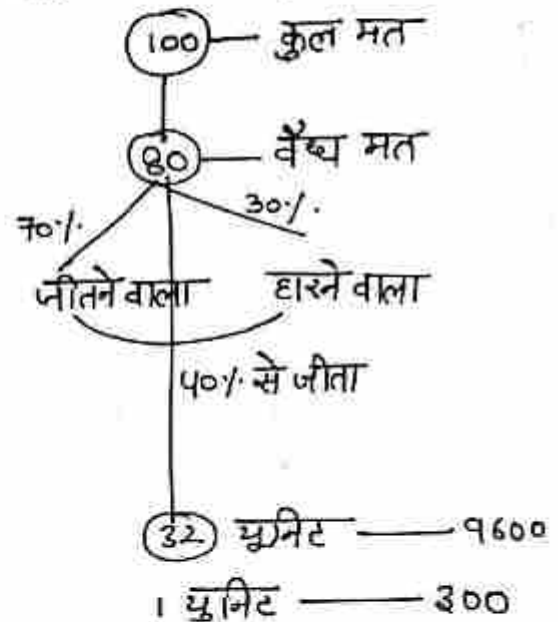 100 — कुल मत
80 — वैध्य मत
70% 30%
जीतने वाला हारने वाला
40% से जीता
32 यूनिट — 9600
1 युनिट — 300